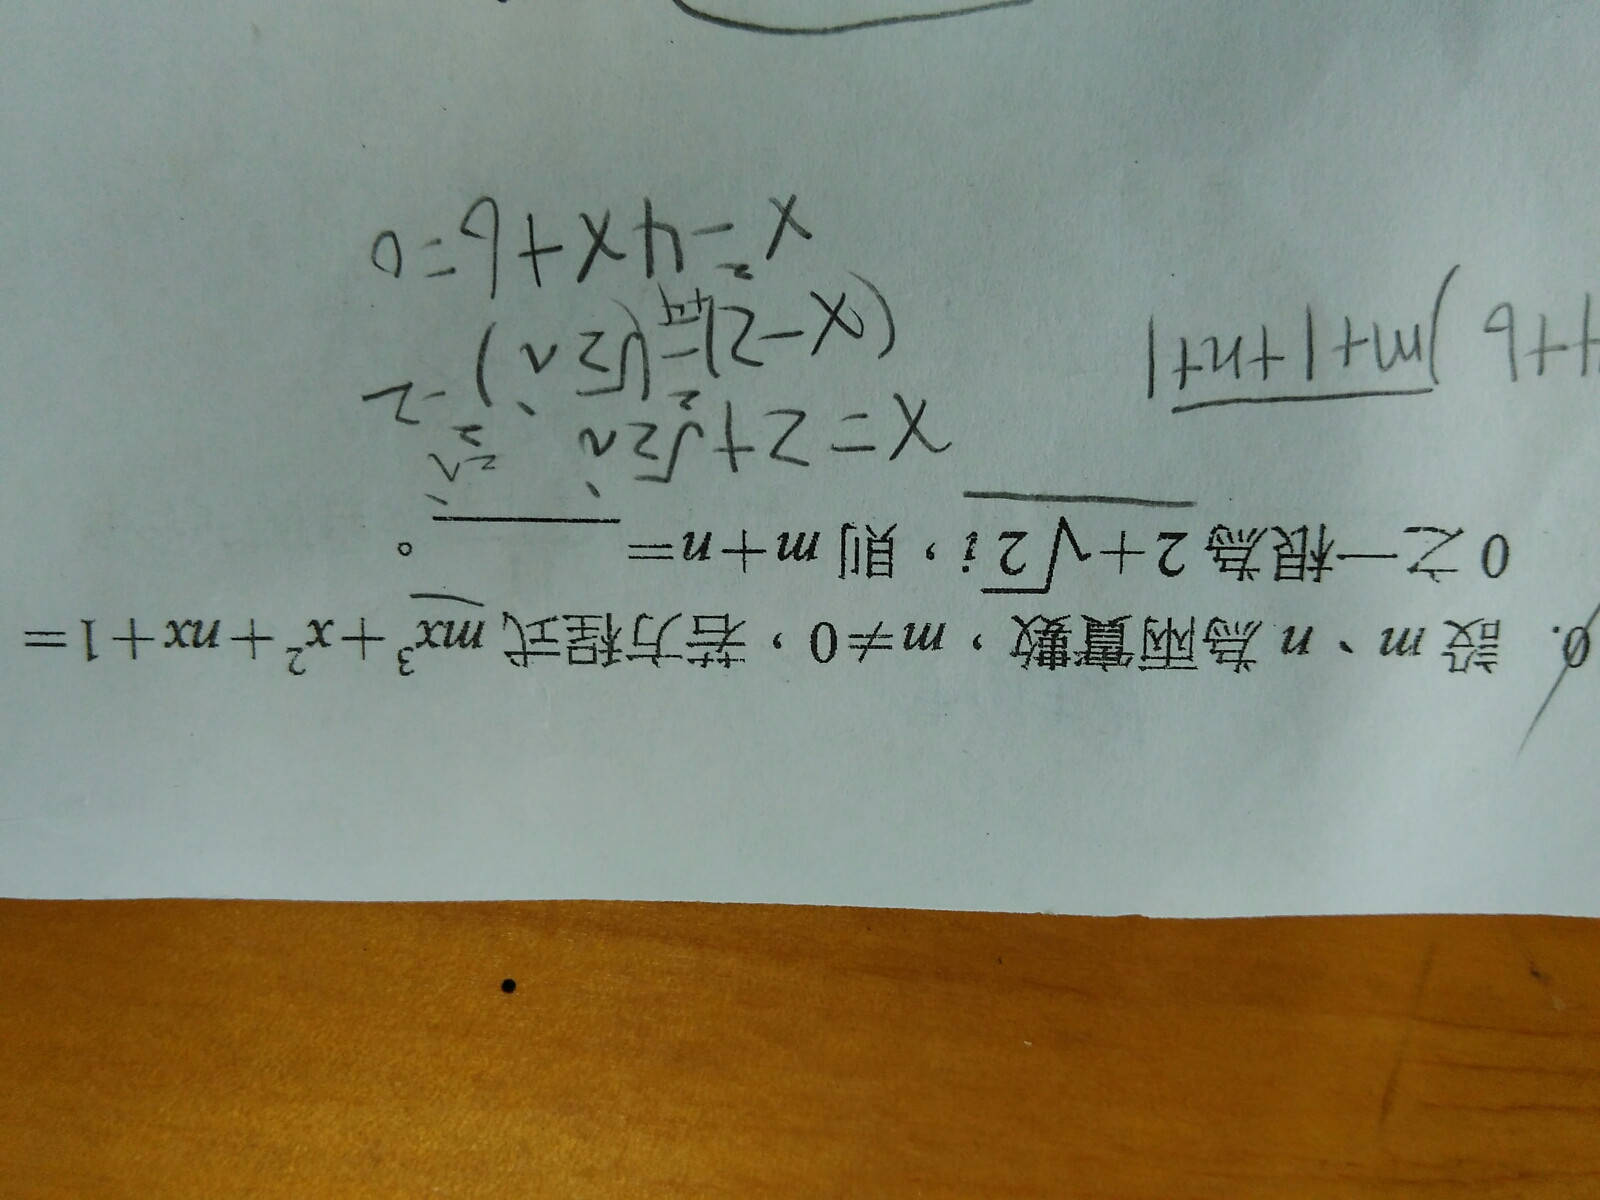 0. 設 m、n 為兩實數，m≠0，若方程式 mx³+x²+nx+1=
0 之一根為 2+√2 i，則 m+n= ______ 。
x=2+√2 i
(x-2)²=(√2 i)² -2
+4
x²-4x+6=0
4+6 )m+1+n+1